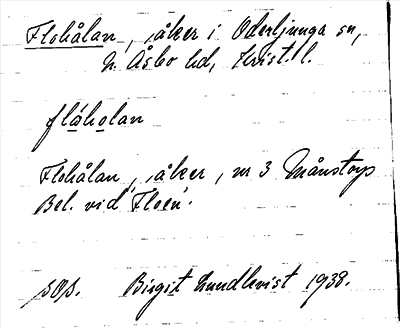 Flohålan, åker i Oderljunga sn,
N. Åsbo hd, Krist. l.
flåholan
Flohålan, åker, nr 3 Månstorp
Bel. vid 'Floen'.
sOp. Birgit Lundkvist 1938.